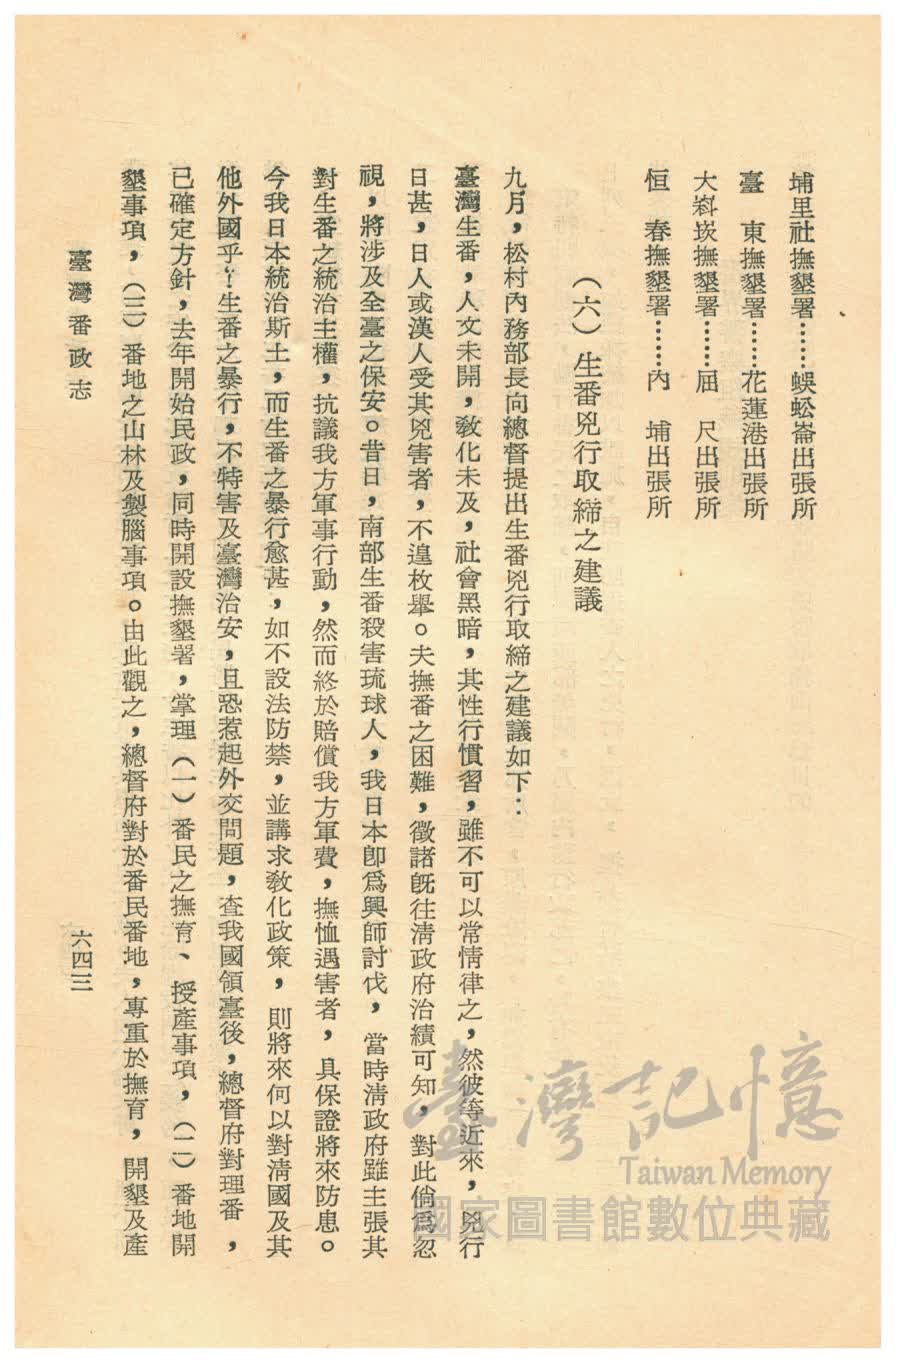 埔里社撫墾署……蜈蚣崙出張所
臺　東撫墾署……花蓮港出張所
大嵙崁撫墾署……屈　尺出張所
恒　春撫墾署……內　埔出張所
（六）生番兇行取締之建議
九月，松村內務部長向總督提出生番兇行取締之建議如下：
臺灣生番，人文未開，敎化未及，社會黑暗，其性行慣習，雖不可以常情律之，然彼等近來，兇行
日甚，日人或漢人受其兇害者，不遑枚舉。夫撫番之困難，徵諸旣往淸政府治績可知，對此倘爲忽
視，將涉及全臺之保安。昔日，南部生番殺害琉球人，我日本卽爲興師討伐，當時淸政府雖主張其
對生番之統治主權，抗議我方軍事行動，然而終於賠償我方軍費，撫恤遇害者，具保證將來防患。
今我日本統治斯土，而生番之暴行愈甚，如不設法防禁，並講求敎化政策，則將來何以對淸國及其
他外國乎！生番之暴行，不特害及臺灣治安，且恐惹起外交問題，查我國領臺後，總督府對理番，
已確定方針，去年開始民政，同時開設撫墾署，掌理（一）番民之撫育、授產事項，（二）番地開
墾事項，（三）番地之山林及製腦事項。由此觀之，總督府對於番民番地，專重於撫育，開墾及產
臺灣番政志
六四三
臺灣記憶
Taiwan Memory
國家圖書館數位典藏